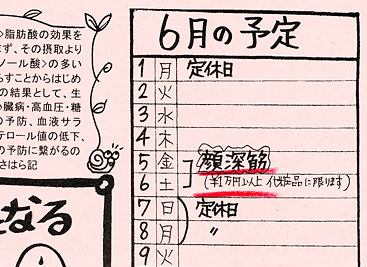 脂肪酸の効果を
ず、その摂取より
ノール酸>の多い
らすことからはじめ
の結果として、生
心臓病・高血圧・糖
の予防、血液サラ
テロール値の低下、
の予防に繋がるの
さはら記
なる
6月の予定
1 月 定休日
2 火
3 水
4 木
5 金 顔深筋
6 土 (¥1万円以上 化粧品に限ります)
7 日 定休日
8 月 〃
9 火